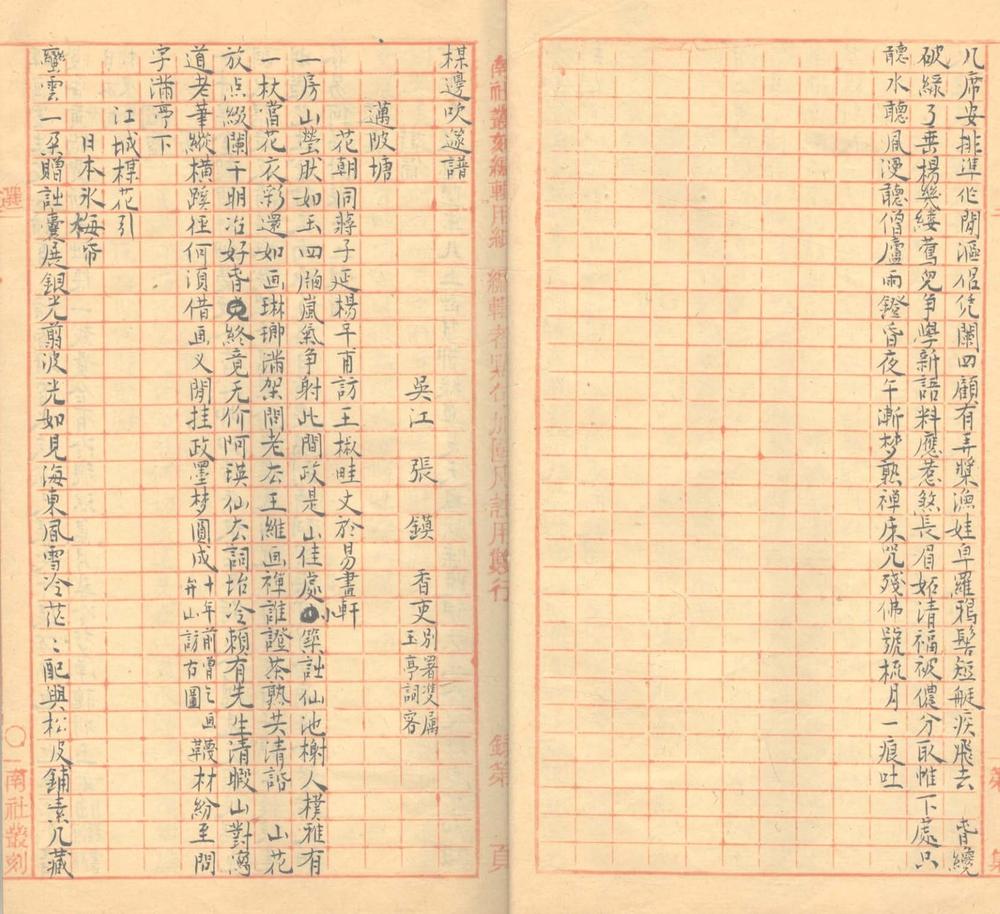 几席安排準作閒漚侣凭闌四顧有弄槳漁娃卓羅鴉髻短艇疾飛去　脊纔
破緑了垂楊幾縷鶯兒争學新語料應惹煞長眉妬清福被儂分取惟下處只
聽水聽風漫聽僧廬雨鐙昏夜午漸梦熟禅床咒殘佛號梳月一痕吐
南社叢刻編輯用紙
楳邊吹邃譜
吳江　張　鏌　香吏 别署雙属玉亭詞客
邁陂塘
花朝同蔣子延楊平甫訪王椒畦丈於易畫軒
一房山瑩肰如玉四廂嵐氣争射此間政是山佳處小築詎仙池榭人樸雅有
一枚當花衣彩還如画琳瑯滿架問老去王維画禅誰證茶熟共清話　山花
放点綴闌干明冶好脊終竟无价阿瑛仙去詞垍冷賴有先生清暇山對寫
道老筆縱橫蹊径何湏借画乂閒挂政墨梦圓成 十年前曽乞画弁山訪古圖 鞾材紛至問
字滿亭下
江城楳花引
日本氷梅帋
蠻雲一朶贈詎囊展銀光翦波光如見海東風雪冷茫〻配與松皮鋪素几藏
選
南社叢刻
頁